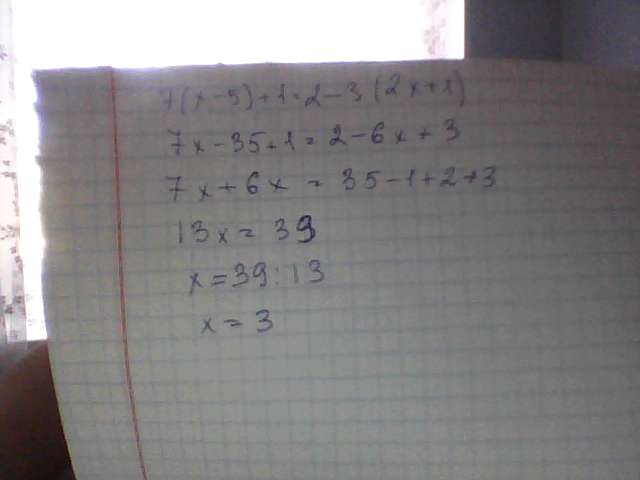 7(x-5)+1=2-3(2x+1)
7x-35+1=2-6x+3
7x+6x=35-1+2+3
13x=39
x=39:13
x=3